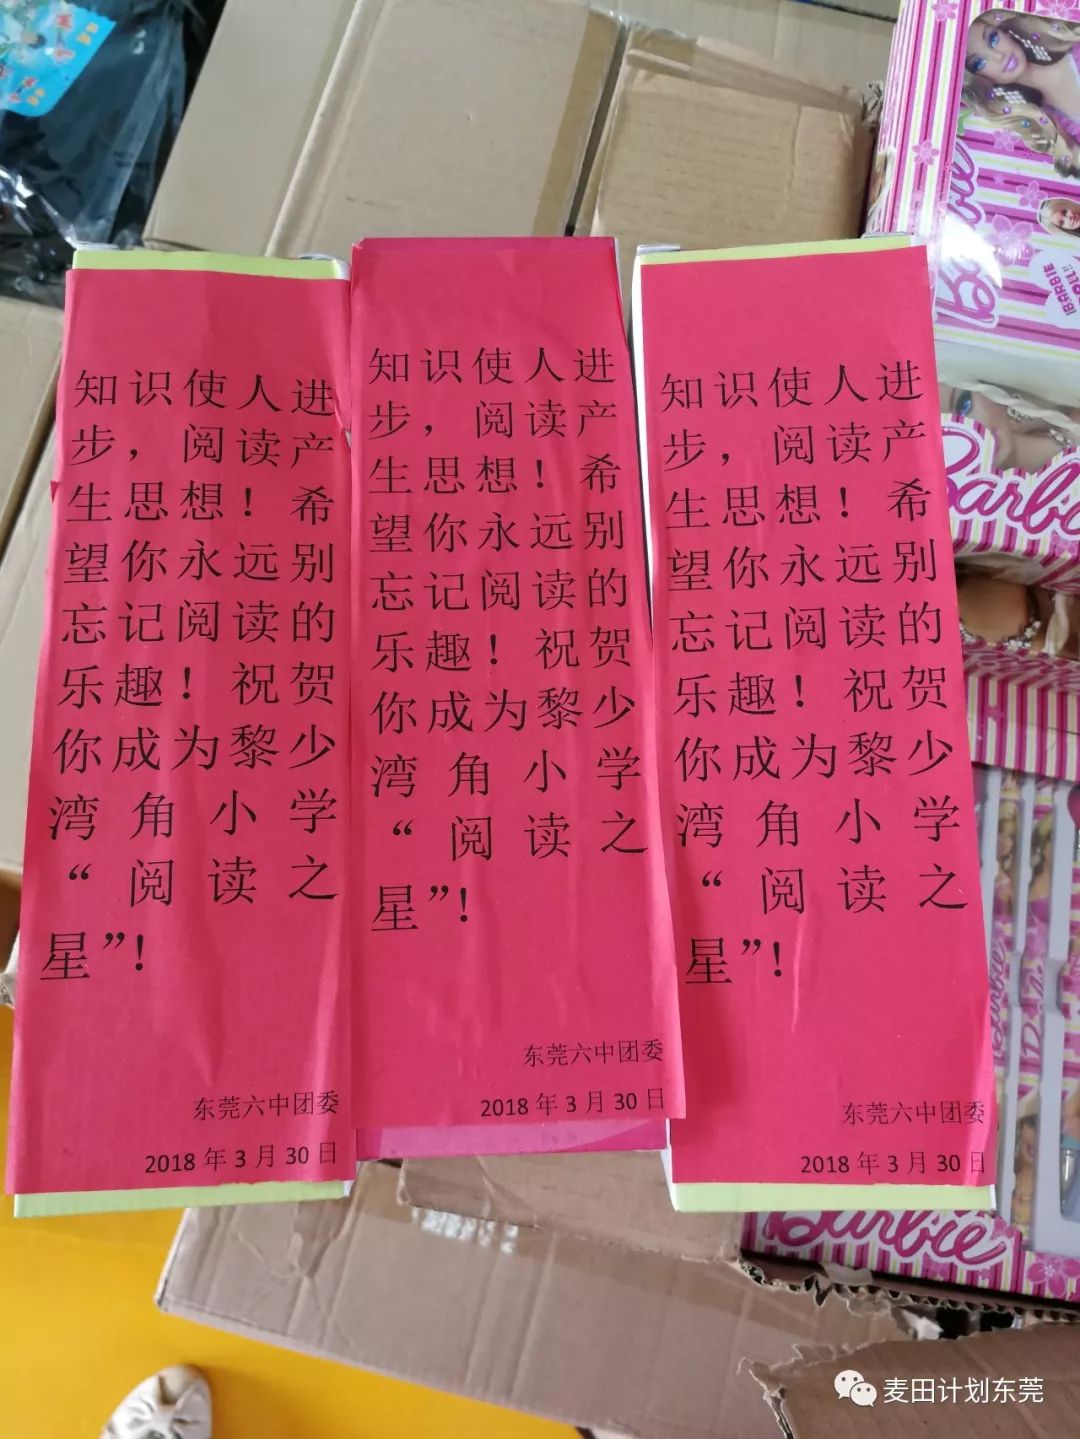 知识使人进
步，阅读产
生思想！希
望你永远别
忘记阅读的
乐趣！祝贺
你成为黎少
湾角小学
“阅读之
星”！
东莞六中团委
2018 年 3 月 30 日
知识使人进
步，阅读产
生思想！希
望你永远别
忘记阅读的
乐趣！祝贺
你成为黎少
湾角小学
“阅读之
星”！
东莞六中团委
2018 年 3 月 30 日
知识使人进
步，阅读产
生思想！希
望你永远别
忘记阅读的
乐趣！祝贺
你成为黎少
湾角小学
“阅读之
星”！
东莞六中团委
2018 年 3 月 30 日
Barbie
Barbie
Barbie
麦田计划东莞